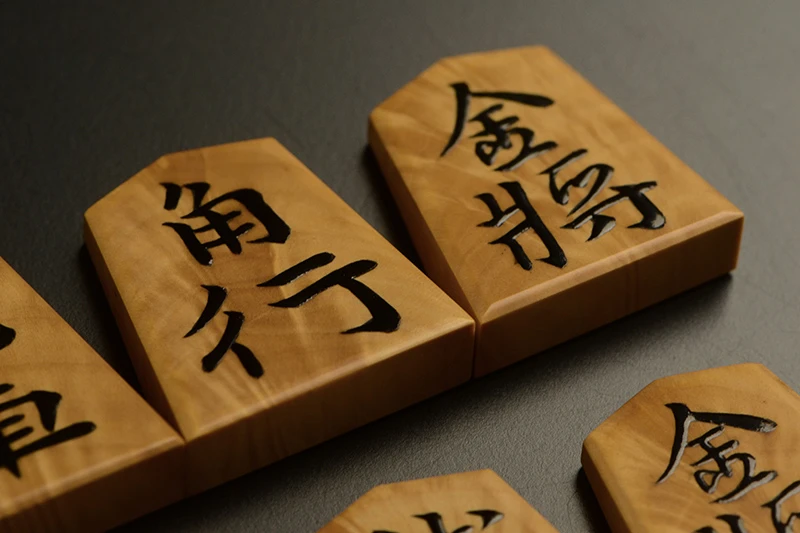 金
將
角
行
車
金